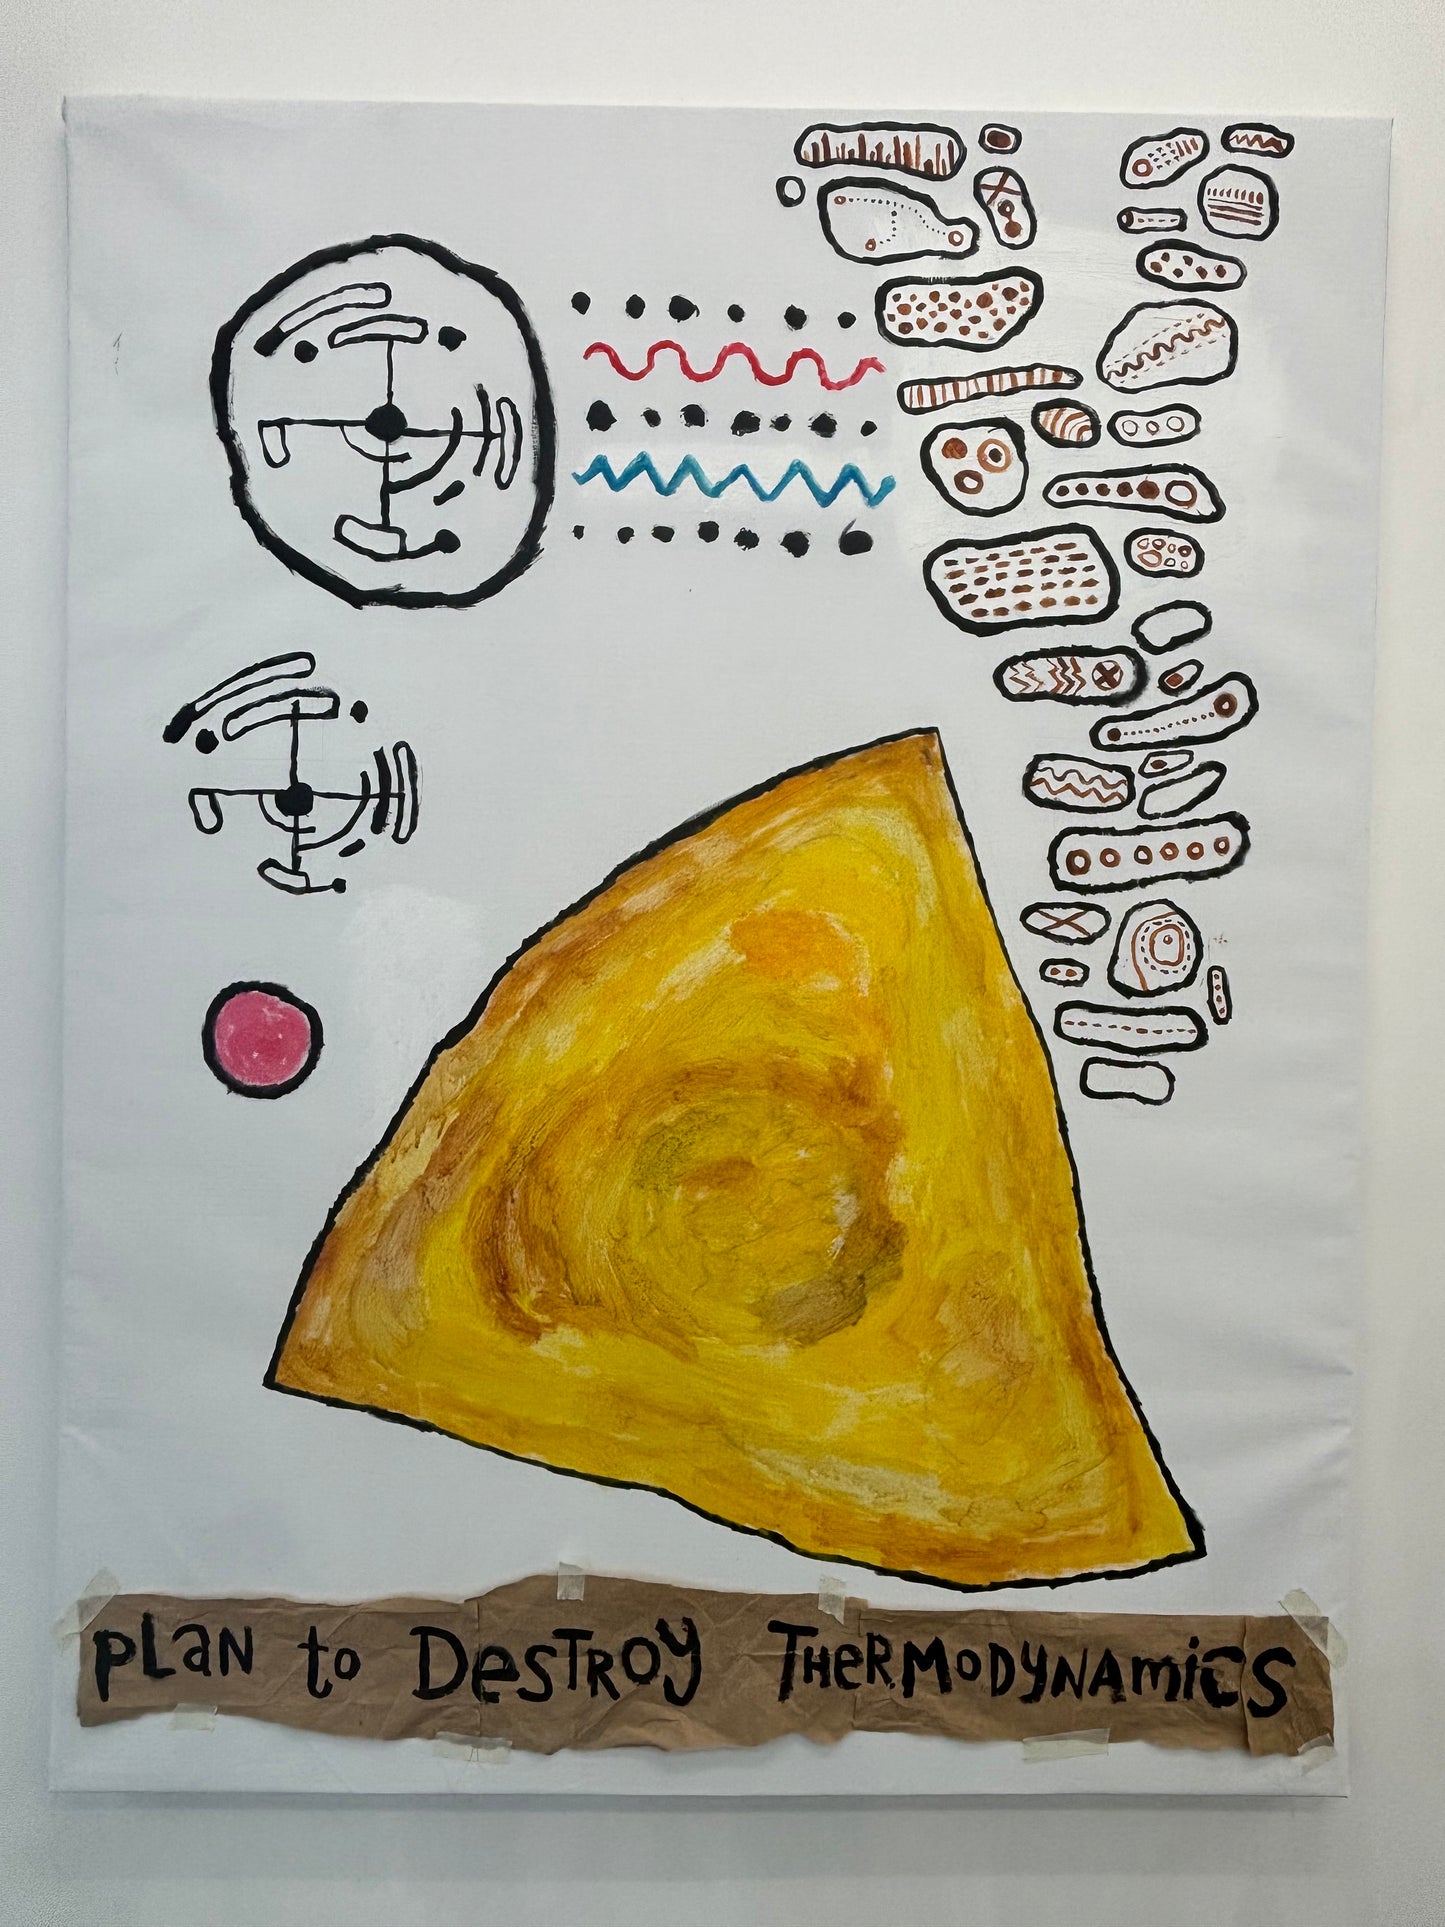 PLaN to DeSTROY THeRMODYNAMiCS